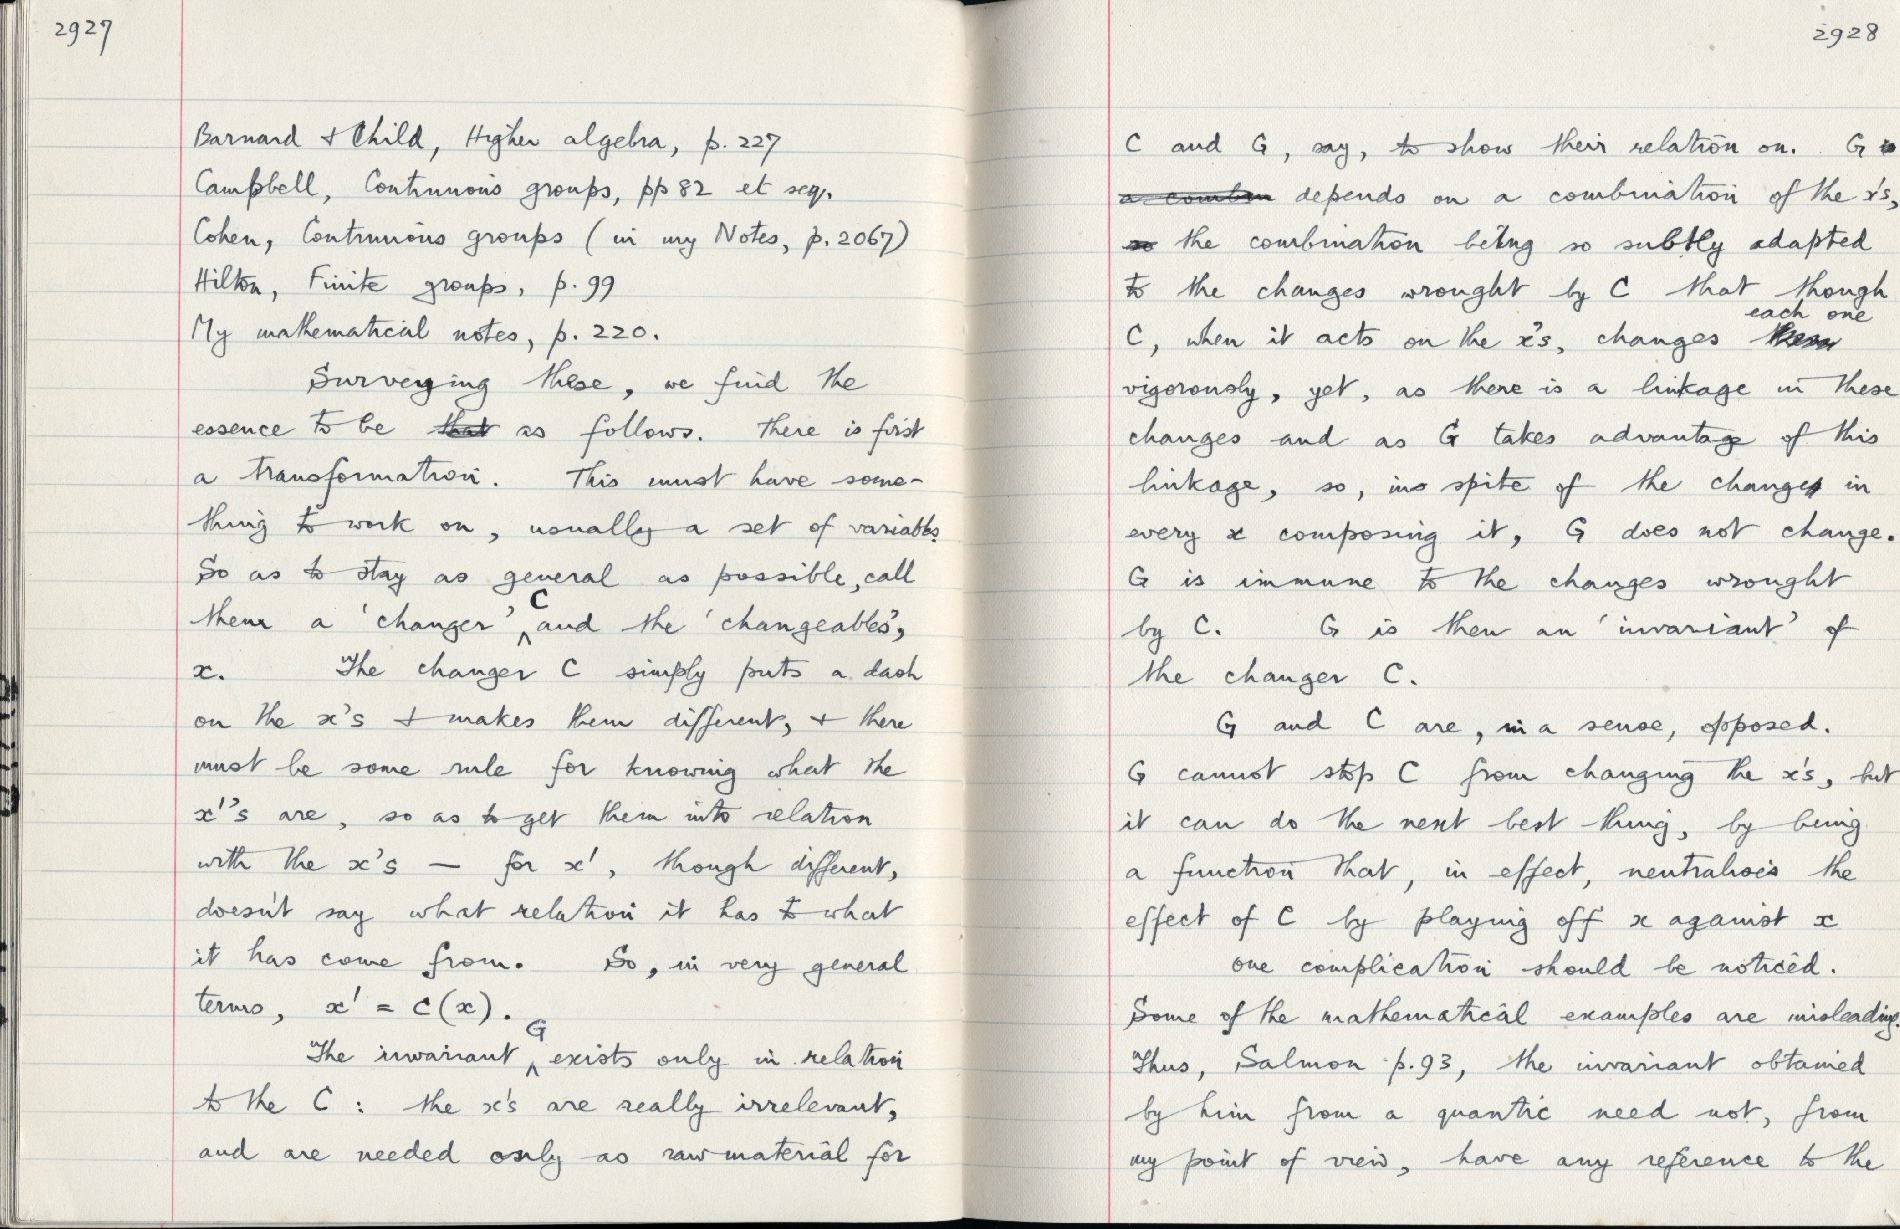 2927
Barnard + Child, Higher algebra, p. 227
Campbell, Continuous groups, pp 82 et seq.
Cohen, Continuous groups (in my Notes, p. 2067)
Hilton, Finite groups, p. 99
My mathematical notes, p. 220.
Surveying these, we find the
essence to be that as follows. There is first
a transformation. This must have some-
thing to work on, usually a set of variables.
So as to stay as general as possible, call
C
them a 'changer' ‸ and the 'changeables',
x. The changer C simply puts a dash
on the x's + makes them different, + there
must be some rule for knowing what the
x''s are, so as to get them into relation
with the x's — for x', though different,
doesn't say what relation it has to what
it has come from. So, in very general
terms, x' = C(x).
G
The invariant ‸ exists only in relation
to the C : the x's are really irrelevant,
and are needed only as raw material for
2928
C and G, say, to show their relation on. G is
a combin depends on a combination of the x's,
so the combination being so subtly adapted
to the changes wrought by C that though
each one
C, when it acts on the x's, changes them
vigorously, yet, as there is a linkage in these
changes and as G takes advantage of this
linkage, so, in spite of the changes in
every x composing it, G does not change.
G is immune to the changes wrought
by C. G is then an 'invariant' of
the changer C.
G and C are, in a sense, opposed.
G cannot stop C from changing the x's, but
it can do the next best thing, by being
a function that, in effect, neutralises the
effect of C by playing off x against x
One complication should be noticed.
Some of the mathematical examples are misleading.
Thus, Salmon p. 93, the invariant obtained
by him from a quantic need not, from
my point of view, have any reference to the